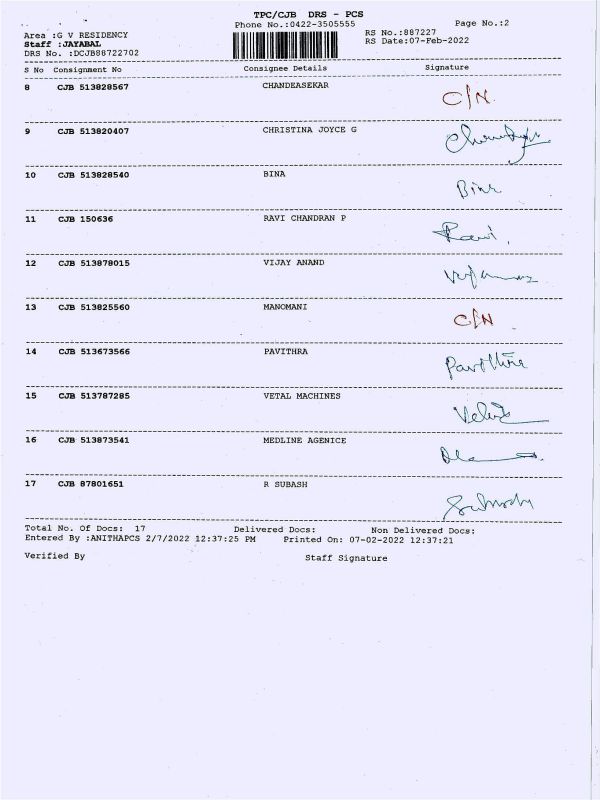 TPC/CJB DRS - PCS
Phone No.:0422-3505555 Page No.:2
Area :G V RESIDENCY RS No.:887227
Staff :JAYABAL RS Date:07-Feb-2022
DRS No. :DCJB88722702
S No Consignment No Consignee Details Signature
8 CJB 513828567 CHANDEASEKAR C/N
9 CJB 513820407 CHRISTINA JOYCE G
10 CJB 513828540 BINA Bina
11 CJB 150636 RAVI CHANDRAN P Ravi
12 CJB 513878015 VIJAY ANAND
13 CJB 513825560 MANOMANI C/N
14 CJB 513673566 PAVITHRA Pavithra
15 CJB 513787285 VETAL MACHINES
16 CJB 513873541 MEDLINE AGENICE
17 CJB 87801651 R SUBASH
Total No. Of Docs: 17 Delivered Docs: Non Delivered Docs:
Entered By :ANITHAPCS 2/7/2022 12:37:25 PM Printed On: 07-02-2022 12:37:21
Verified By Staff Signature